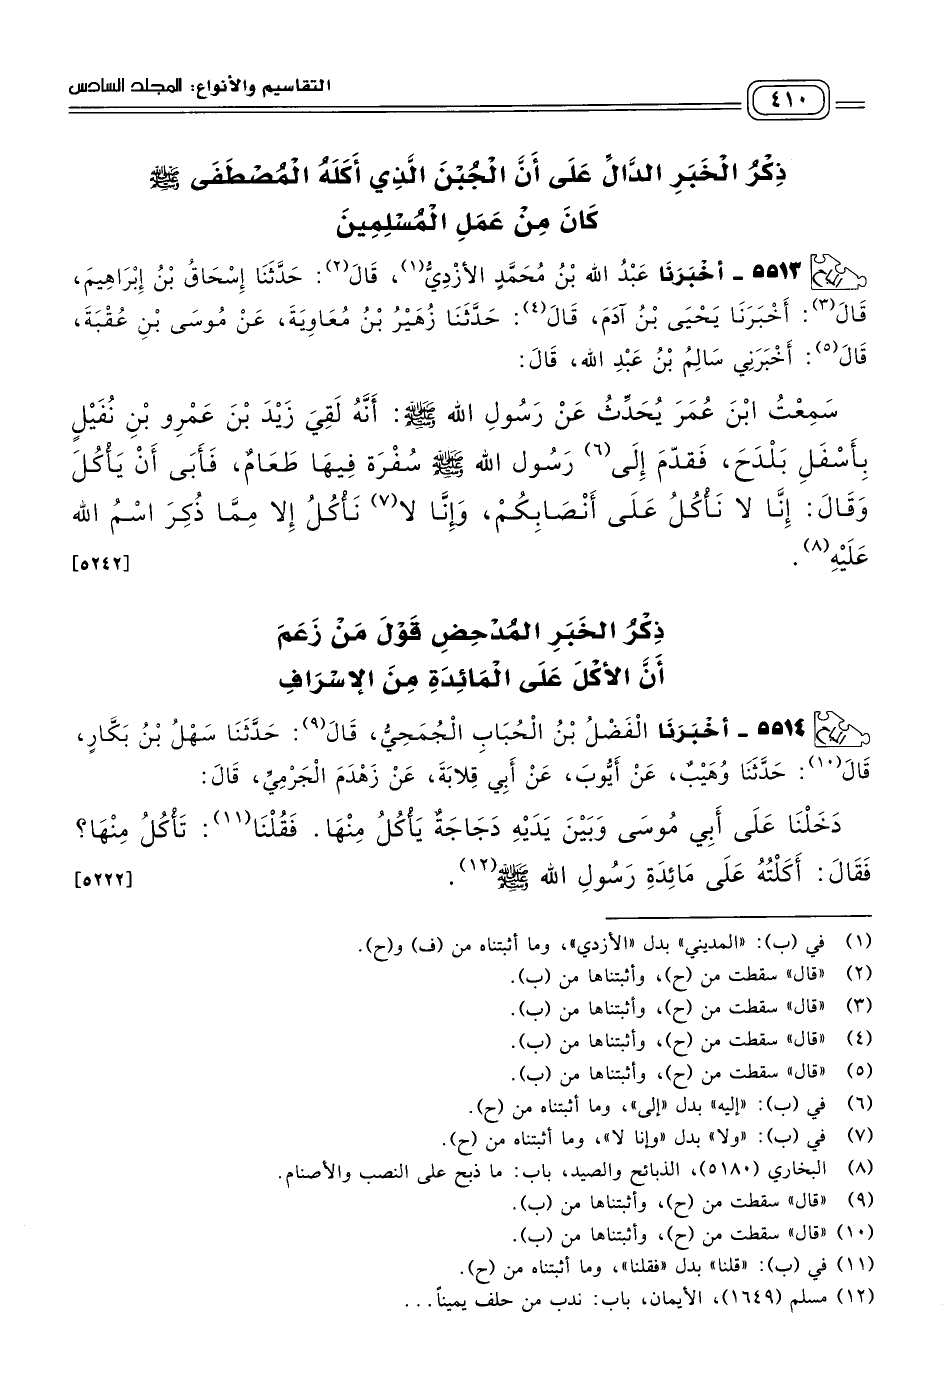 التقاسيم والأنواع: المجلد السادس
٤١٠
ذِكْرُ الْخَبَرِ الدَّالِّ عَلَى أَنَّ الْجُبْنَ الَّذِي أَكَلَهُ الْمُصْطَفَى ﷺ
كَانَ مِنْ عَمَلِ الْمُسْلِمِينَ
٥٥١٣ - أخْبَرَنَا عَبْدُ الله بْنُ مُحَمَّدٍ الأزْدِيُّ(١)، قَالَ(٢): حَدَّثَنَا إِسْحَاقُ بْنُ إِبْرَاهِيمَ،
قَالَ(٣): أَخْبَرَنَا يَحْيَى بْنُ آدَمَ، قَالَ(٤): حَدَّثَنَا زُهَيْرُ بْنُ مُعَاوِيَةَ، عَنْ مُوسَى بْنِ عُقْبَةَ،
قَالَ(٥): أَخْبَرَنِي سَالِمُ بْنُ عَبْدِ الله، قَالَ:
سَمِعْتُ ابْنَ عُمَرَ يُحَدِّثُ عَنْ رَسُولِ الله ﷺ: أَنَّهُ لَقِيَ زَيْدَ بْنَ عَمْرِو بْنِ نُفَيْلٍ
بِأَسْفَلِ بَلْدَحَ، فَقدّمَ إِلَى(٦) رَسُولِ الله ﷺ سُفْرَة فِيهَا طَعَامٌ، فَأَبَى أَنْ يَأْكُلَ
وَقَالَ: إِنَّا لا نَأْكُلُ عَلَى أَنْصَابِكُمْ، وَإِنَّا لا(٧) نَأْكُلُ إلا مِمَّا ذُكِرَ اسْمُ الله
عَلَيْهِ(٨). [٥٢٤٢]
ذِكْرُ الخَبَرِ المُدْحِضِ قَوْلَ مَنْ زَعَمَ
أَنَّ الأكْلَ عَلَى الْمَائِدَةِ مِنَ الإسْرَافِ
٥٥١٤ - أخْبَرَنَا الْفَضْلُ بْنُ الْحُبَابِ الْجُمَحِيُّ، قَالَ(٩): حَدَّثَنَا سَهْلُ بْنُ بَكَّارٍ،
قَالَ(١٠): حَدَّثَنَا وُهَيْبٌ، عَنْ أَيُّوبَ، عَنْ أَبِي قِلابَةَ، عَنْ زَهْدَمَ الْجَرْمِيِّ، قَالَ:
دَخَلْنَا عَلَى أَبِي مُوسَى وَبَيْنَ يَدَيْهِ دَجَاجَةٌ يَأْكُلُ مِنْهَا. فَقُلْنَا(١١): تَأْكُلُ مِنْهَا؟
فَقَالَ: أَكَلْتُهُ عَلَى مَائِدَةِ رَسُولِ الله ﷺ(١٢). [٥٢٢٢]
(١) في (ب): «المديني» بدل «الأزدي»، وما أثبتناه من (ف) و(ح).
(٢) «قال» سقطت من (ح)، وأثبتناها من (ب).
(٣) «قال» سقطت من (ح)، وأثبتناها من (ب).
(٤) «قال» سقطت من (ح)، وأثبتناها من (ب).
(٥) «قال» سقطت من (ح)، وأثبتناها من (ب).
(٦) في (ب): «إليه» بدل «إلى»، وما أثبتناه من (ح).
(٧) في (ب): «ولا» بدل «وإنا لا»، وما أثبتناه من (ح).
(٨) البخاري (٥١٨٠)، الذبائح والصيد، باب: ما ذبح على النصب والأصنام.
(٩) «قال» سقطت من (ح)، وأثبتناها من (ب).
(١٠) «قال» سقطت من (ح)، وأثبتناها من (ب).
(١١) في (ب): «قلنا» بدل «فقلنا»، وما أثبتناه من (ح).
(١٢) مسلم (١٦٤٩)، الأيمان، باب: ندب من حلف يميناً...